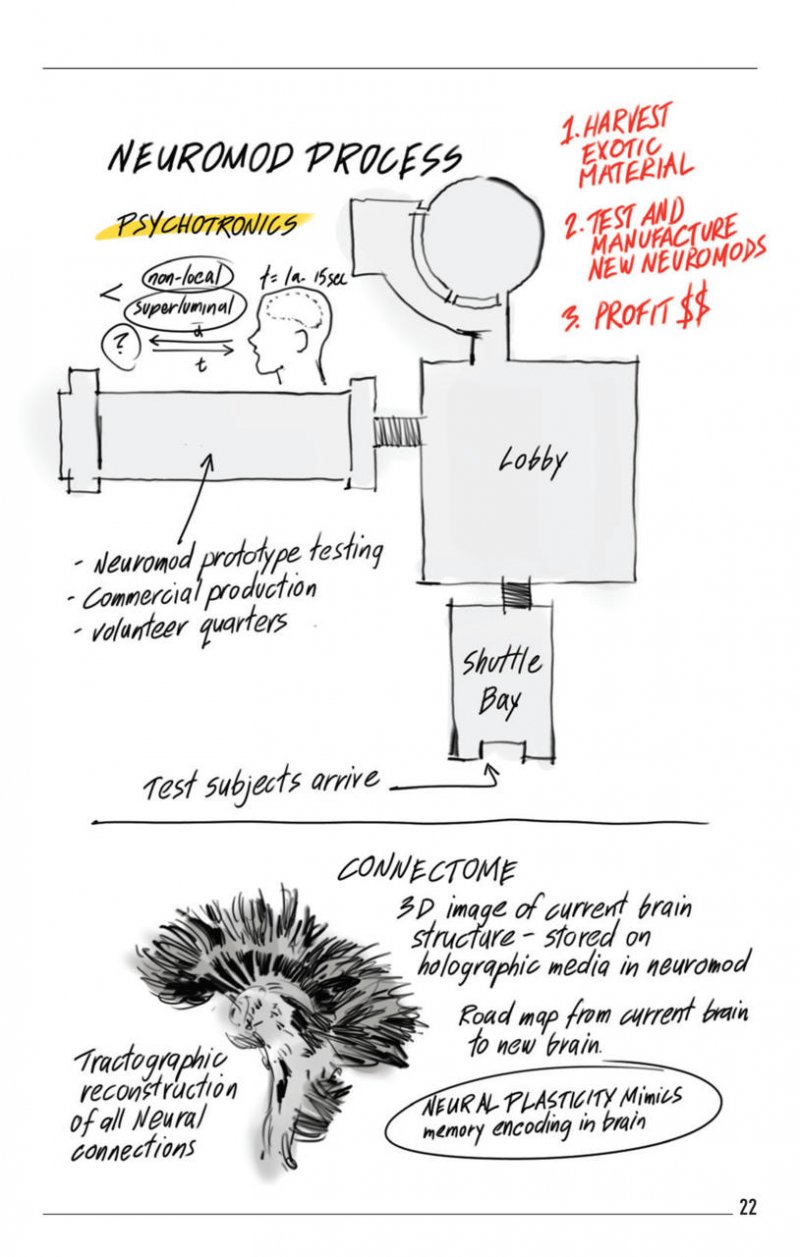 NEUROMOD PROCESS
1. HARVEST
EXOTIC
MATERIAL
2. TEST AND
MANUFACTURE
NEW NEUROMODS
3. PROFIT $$
PSYCHOTRONICS
<
non-local
superluminal
?
t
Lobby
- Neuromod prototype testing
- Commercial production
- volunteer quarters
Shuttle
Bay
Test subjects arrive
CONNECTOME
3D image of current brain
structure - stored on
holographic media in neuromod
Road map from current brain
to new brain.
Tractographic
reconstruction
of all Neural
connections
NEURAL PLASTICITY Mimics
memory encoding in brain
22